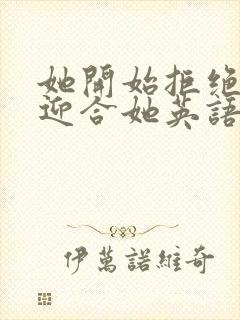 她開始拒絕
迎合她英語
伊萬諾維奇